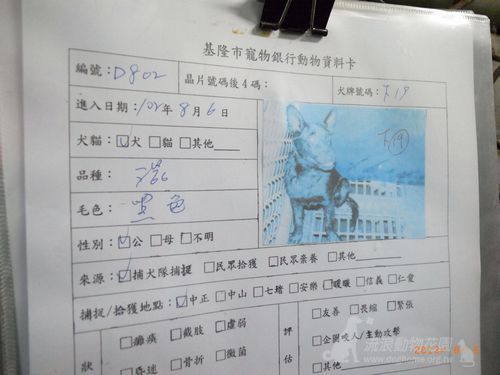 基隆市寵物銀行動物資料卡
編號：D802 晶片號碼後4碼： 犬牌號碼：下19
進入日期：102年8月6日
下19
犬貓：☑犬 □貓 □其他
品種：混
毛色：黑色
性別：☑公 □母 □不明
來源：☑捕犬隊捕捉 □民眾拾獲 □民眾棄養 □其他
捕捉/拾獲地點：☑中正 □中山 □七堵 □安樂 □暖暖 □信義 □仁愛
□癱瘓 □截肢 □虛弱 評 □友善 □長縮 □緊張
□企圖咬人/主動攻擊
狀 □昏迷 □骨折 □黴菌 估 □其他
流浪動物花園
www.doghome.org.tw